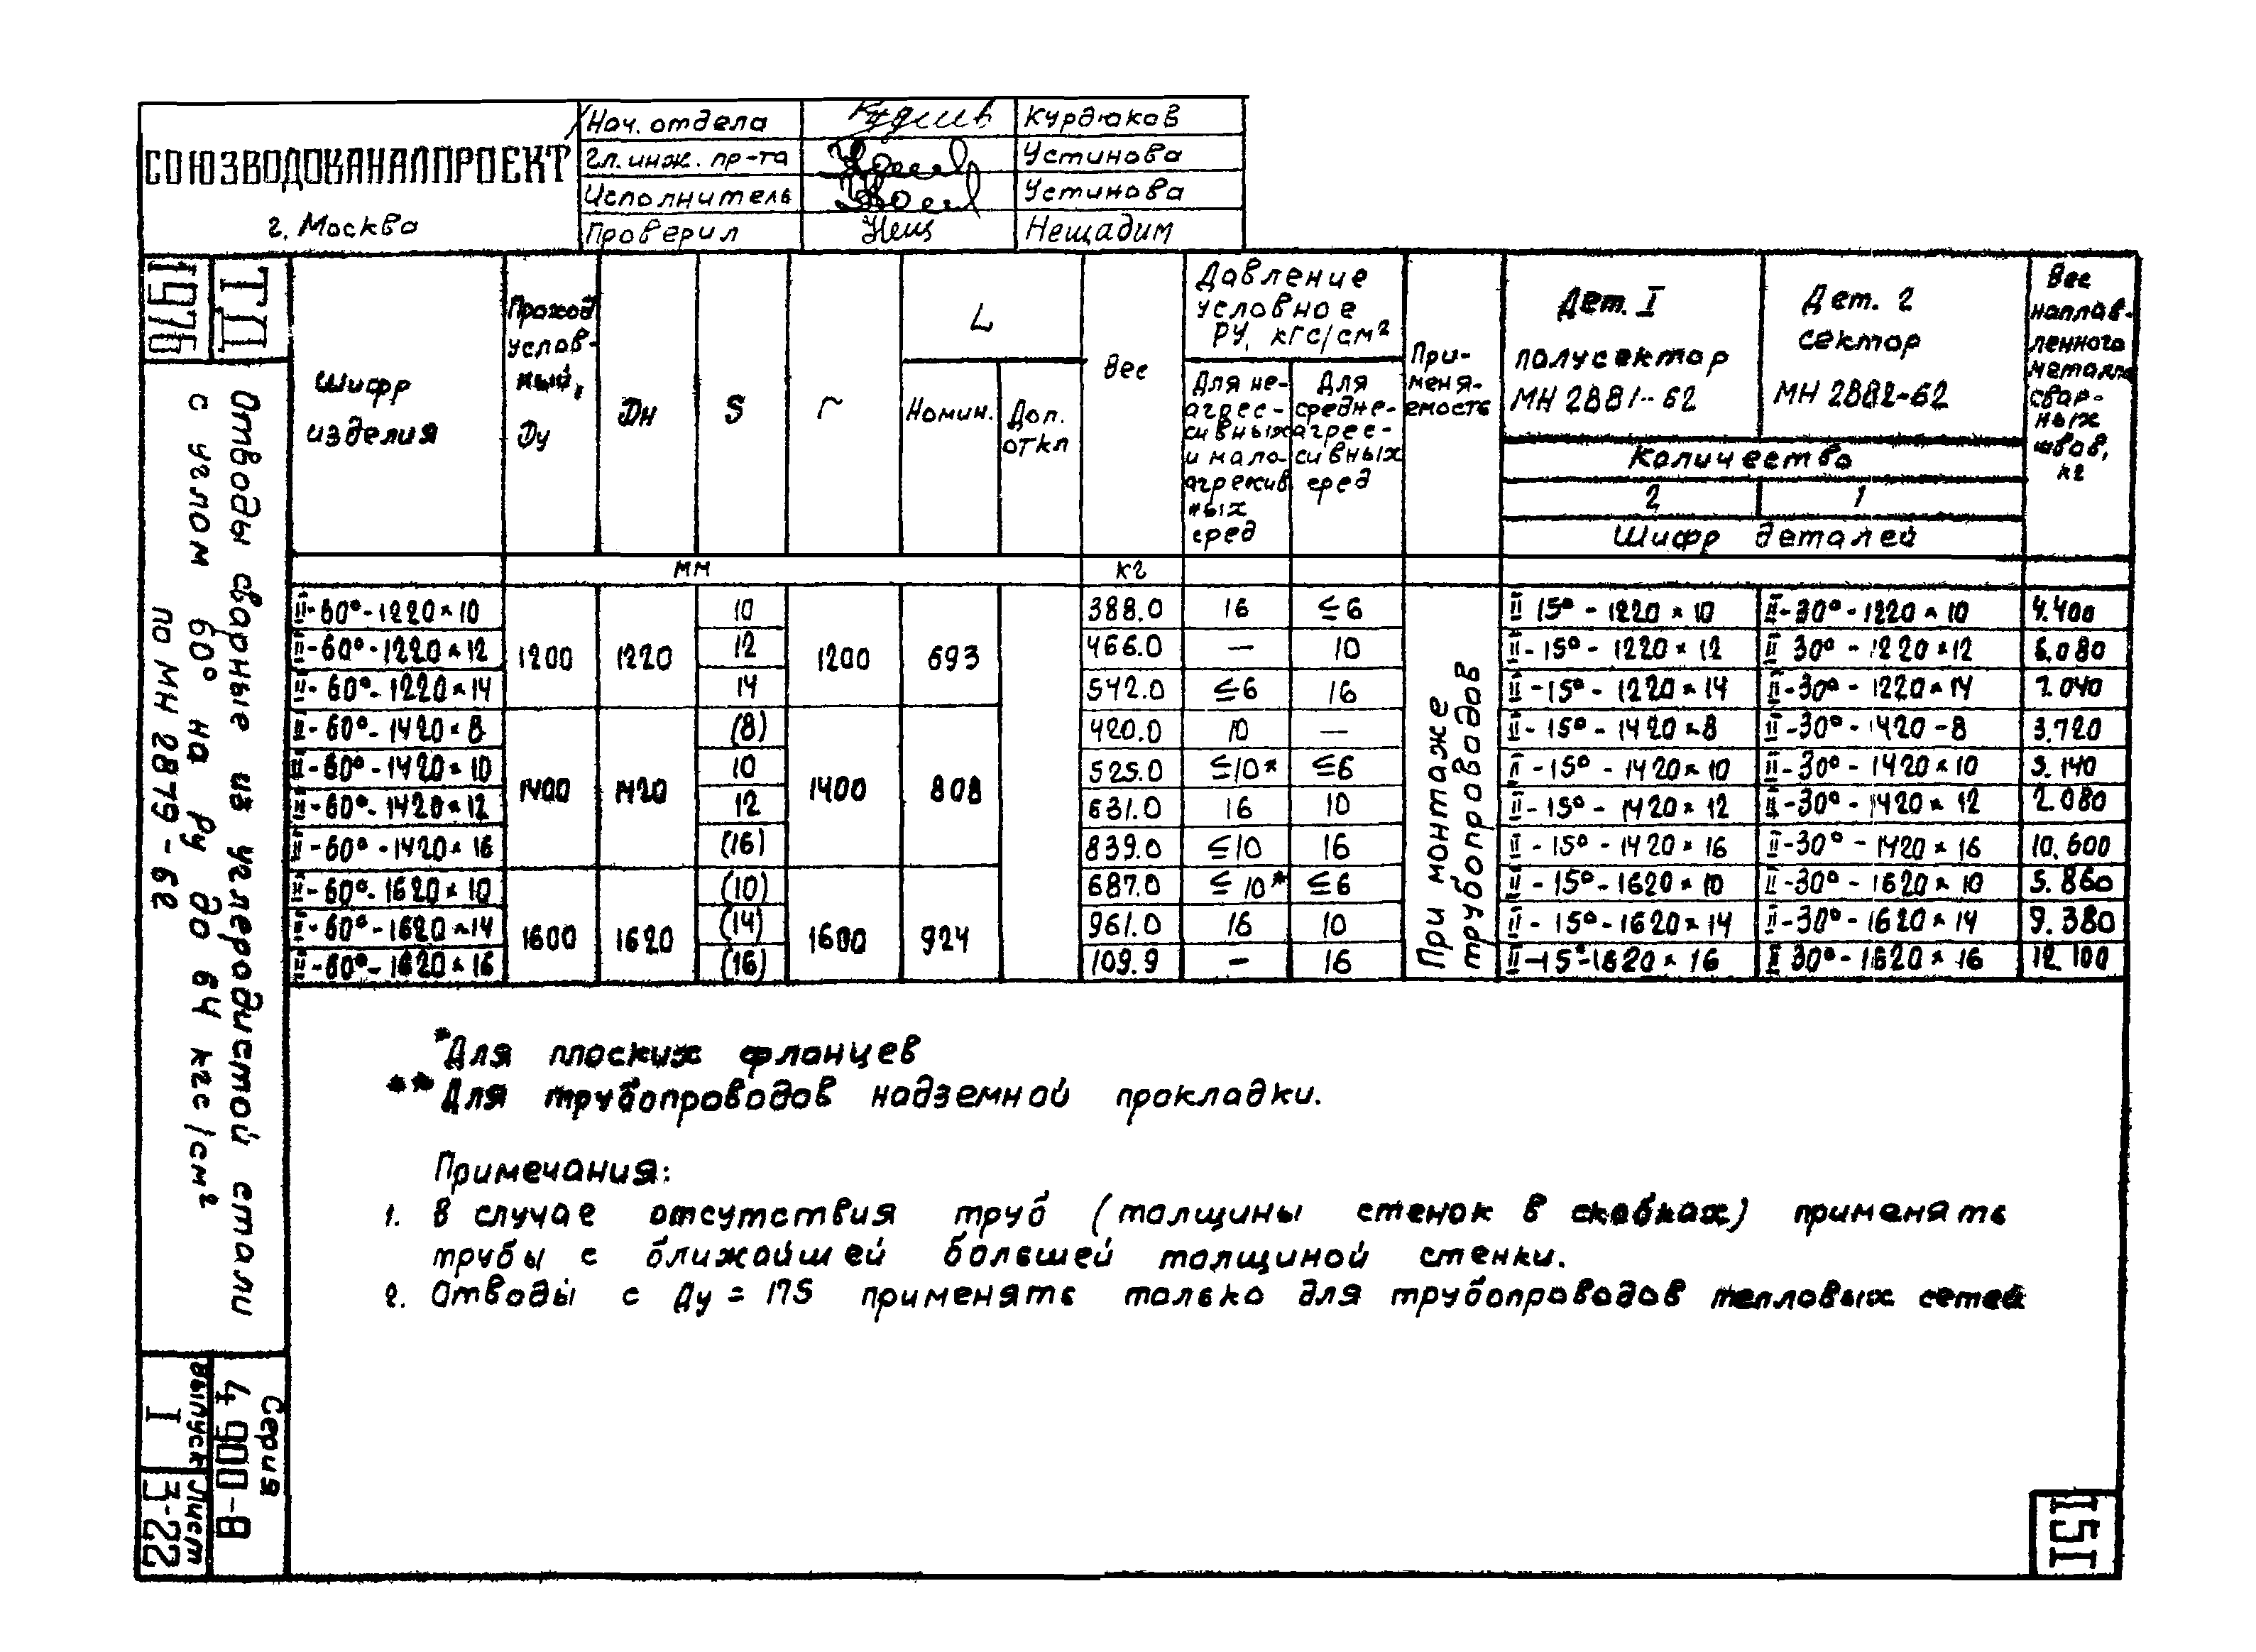 СОЮЗВОДОКАНАЛПРОЕКТ
г. Москва
Нач. отдела Курдюков
Гл. инж. пр-та Устинова
Исполнитель Устинова
Проверил Нещ Нещадим
ТД
1976
Отводы сварные из углеродистой стали
с углом 60° на Ру до 64 кгс/см²
по МН 2879-62
Серия
4.900-8
Выпуск
I
Лист
3-22
Шифр
изделия
Проход
услов-
ный,
Ду
Дн
S
r
L
Номин.
Доп.
откл
Вес
Давление
условное
РУ, кгс/см²
Для не-
агрес-
сивных
и мало-
агрексив
ных
сред
Для
средне-
агрес-
сивных
сред
При-
меня-
емость
Дет. I
полусектор
МН 2881-62
Дет. 2
сектор
МН 2882-62
Количество
2 1
Шифр деталей
Вес
наплав-
ленного
металла
свар-
ных
швов,
кг
мм кг
II-60°-1220×10 10 388.0 16 ≤6 II 15°-1220×10 II-30°-1220×10 4.400
II-60°-1220×12 1200 1220 12 1200 693 466.0 — 10 II-15°-1220×12 II 30°-1220×12 6.080
II-60°-1220×14 14 542.0 ≤6 16 II-15°-1220×14 II-30°-1220×14 7.040
II-60°-1420×8 (8) 420.0 10 — II-15°-1420×8 II-30°-1420-8 3.720
II-60°-1420×10 1400 1420 10 1400 808 525.0 ≤10* ≤6 II-15°-1420×10 II-30°-1420×10 5.140
II-60°-1420×12 12 631.0 16 10 II-15°-1420×12 II-30°-1420×12 2.080
II-60°-1420×16 (16) 839.0 ≤10 16 II-15°-1420×16 II-30°-1420×16 10.600
II-60°-1620×10 (10) 687.0 ≤10* ≤6 II-15°-1620×10 II-30°-1620×10 5.860
II-60°-1620×14 1600 1620 (14) 1600 924 961.0 16 10 II-15°-1620×14 II-30°-1620×14 9.380
II-60°-1620×16 (16) 109.9 — 16 II-15°-1620×16 II 30°-1620×16 12.100
При монтаже
трубопроводов
*Для плоских фланцев
**Для трубопроводов надземной прокладки.
Примечания:
1. В случае отсутствия труб (толщины стенок в скобках) применять
трубы с ближайшей большей толщиной стенки.
2. Отводы с Ду = 175 применять только для трубопроводов тепловых сетей
151